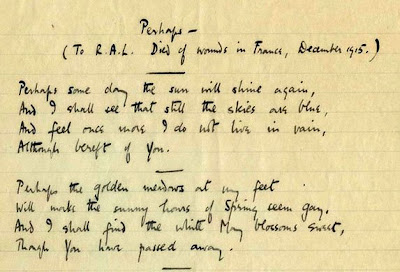 Perhaps —
(To R.A.L. Died of wounds in France, December 1915.)
Perhaps some day the sun will shine again,
And I shall see that still the skies are blue,
And feel once more I do not live in vain,
Although bereft of You.
Perhaps the golden meadows at my feet
Will make the sunny hours of Spring seem gay,
And I shall find the white May blossoms sweet,
Though You have passed away.